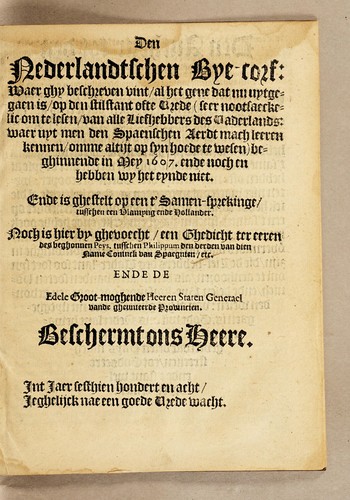 Den
Nederlandtschen Bye-corf:
Waer ghy beschreven vint/ al het gene dat nu uytge-
gaen is/ op den stilstant ofte Vrede/ seer nootsaecke-
lic om te lesen/ van alle Liefhebbers des Vaderlands:
waer uyt men den Spaenschen Aerdt mach leeren
kennen/ omme altijt op syn hoede te wesen/ be-
ghinnende in Mey 1607. ende noch en
hebben wy het eynde niet.
Ende is ghestelt op een t'Samen-sprekinge/
tusschen een Vlamyng ende Hollander.
Noch is hier by ghevoecht/ een Ghedicht ter eeren
des beghonnen Peys, tusschen Philippum den derden van dien
Name Coninck van Spaegnien/ etc.
ENDE DE
Edele Groot-moghende Heeren Staten Generael
vande ghewnieerde Provincien.
Beschermt ons Heere.
Int Jaer sesthien hondert en acht/
Jeghelijck nae een goede Vrede wacht.